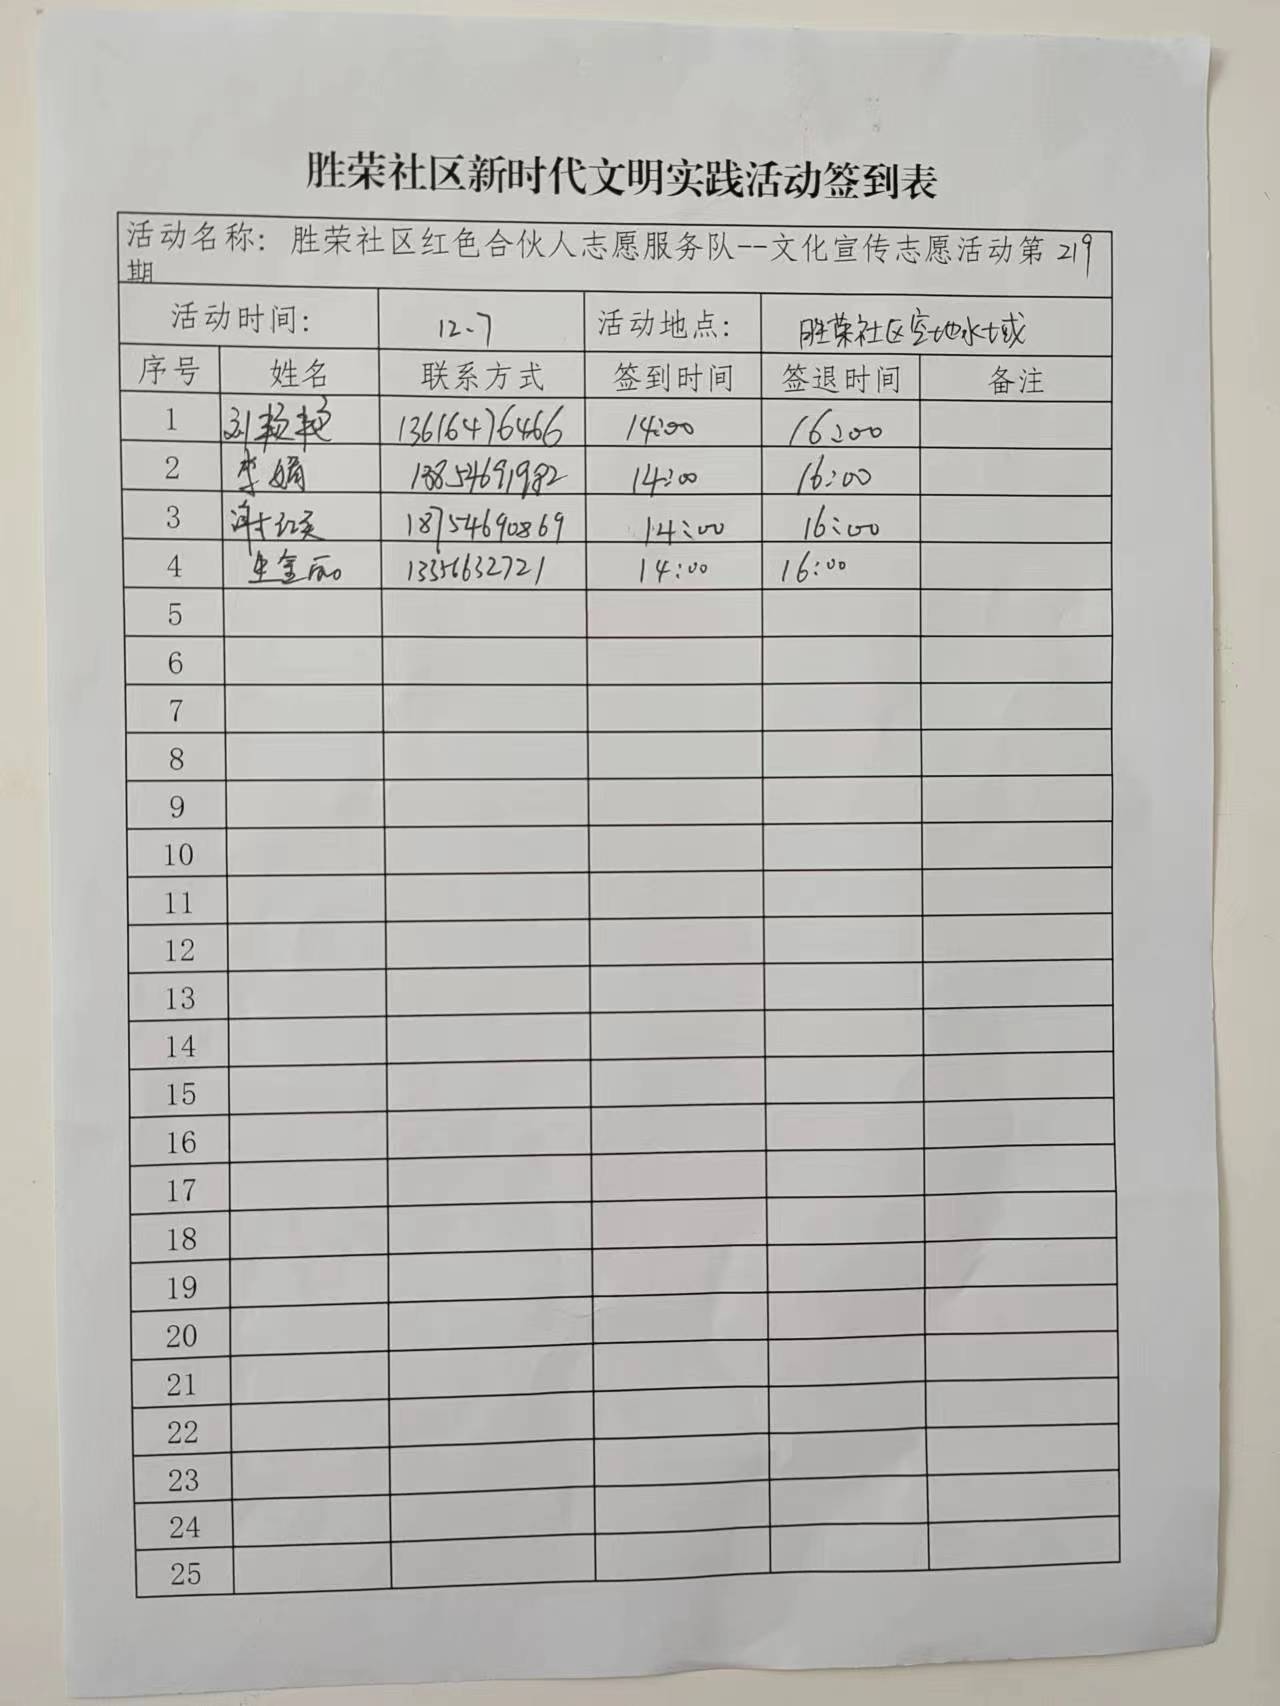 胜荣社区新时代文明实践活动签到表
活动名称：胜荣社区红色合伙人志愿服务队--文化宣传志愿活动第219
期
活动时间： 12.7 活动地点： 胜荣社区空地水域
序号 姓名 联系方式 签到时间 签退时间 备注
1 刘艳艳 13616476466 14:00 16:00
2 李娟 13854691982 14:00 16:00
3 谢红英 18754690869 14:00 16:00
4 金丽 13356632721 14:00 16:00
5
6
7
8
9
10
11
12
13
14
15
16
17
18
19
20
21
22
23
24
25